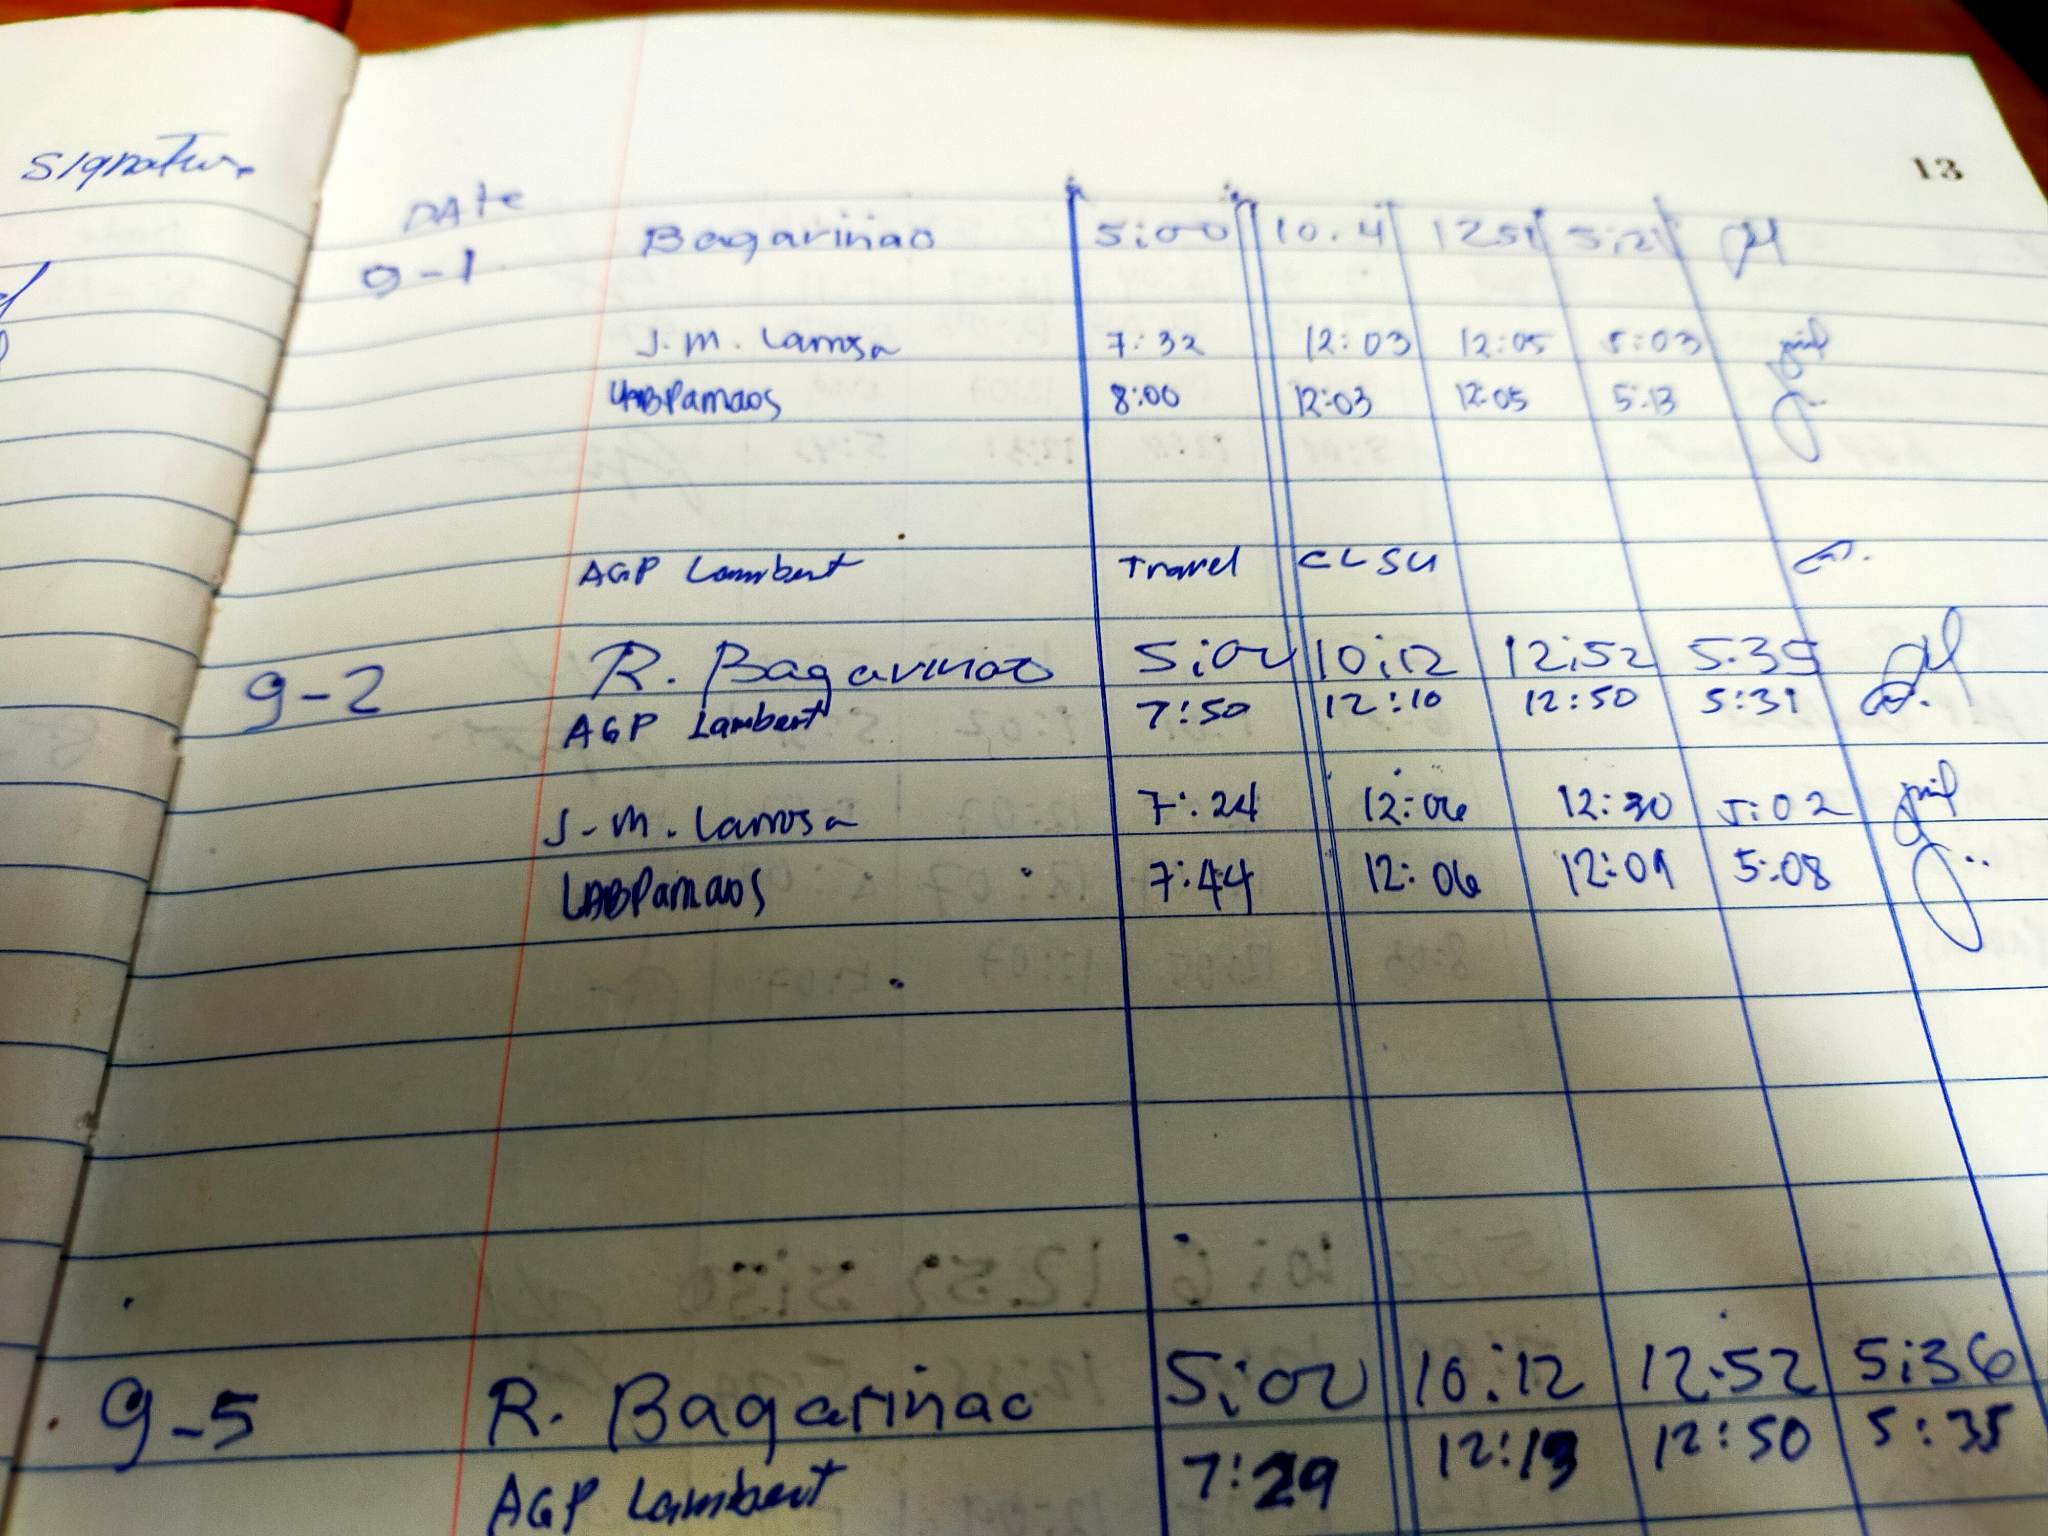 Signature
13
DATE
9-1 Bagarinao 5:00 10.4 1251 5:21
J.M. Larrosa 7:32 12:03 12:05 5:03
LABPamaos 8:00 12:03 12:05 5:13
AGP Lambert Travel CLSU
9-2 R. Bagarinao 5:02 10:12 12:52 5:35
AGP Lambert 7:50 12:10 12:50 5:31
J.M. Larrosa 7:24 12:06 12:30 5:02
LABPamaos 7:44 12:06 12:09 5:08
9-5 R. Bagarinao 5:02 10:12 12.52 5:36
AGP Lambert 7:29 12:13 12:50 5:35